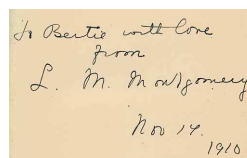 To Bertie with love
from
L. M. Montgomery
Nov 14.
1910